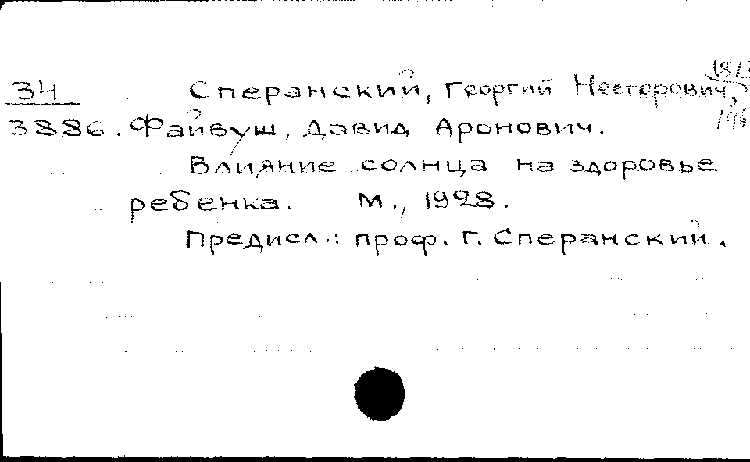 34 Сперанский, Георгий Несторович,
3886. Файвуш, Давид Аронович.
Влияние солнца на здоровье
ребенка. М., 1928.
Предисл.: проф. Г. Сперанский.